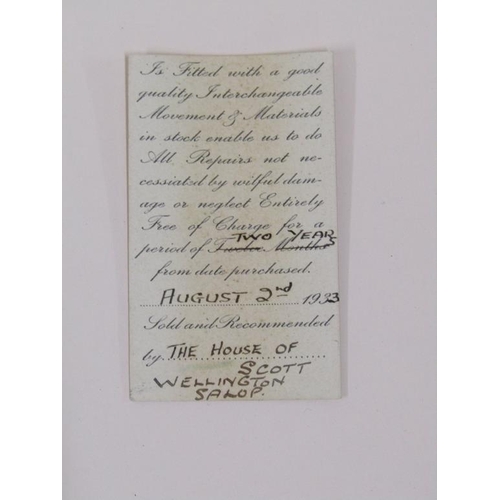 Is Fitted with a good
quality Interchangeable
Movement & Materials
in stock enable us to do
All Repairs not ne-
cessiated by wilful dam-
age or neglect Entirely
Free of Charge for a
TWO YEARS
period of Twelve Months
from date purchased.
AUGUST 2nd 1933
Sold and Recommended
by THE HOUSE OF
SCOTT
WELLINGTON
SALOP.